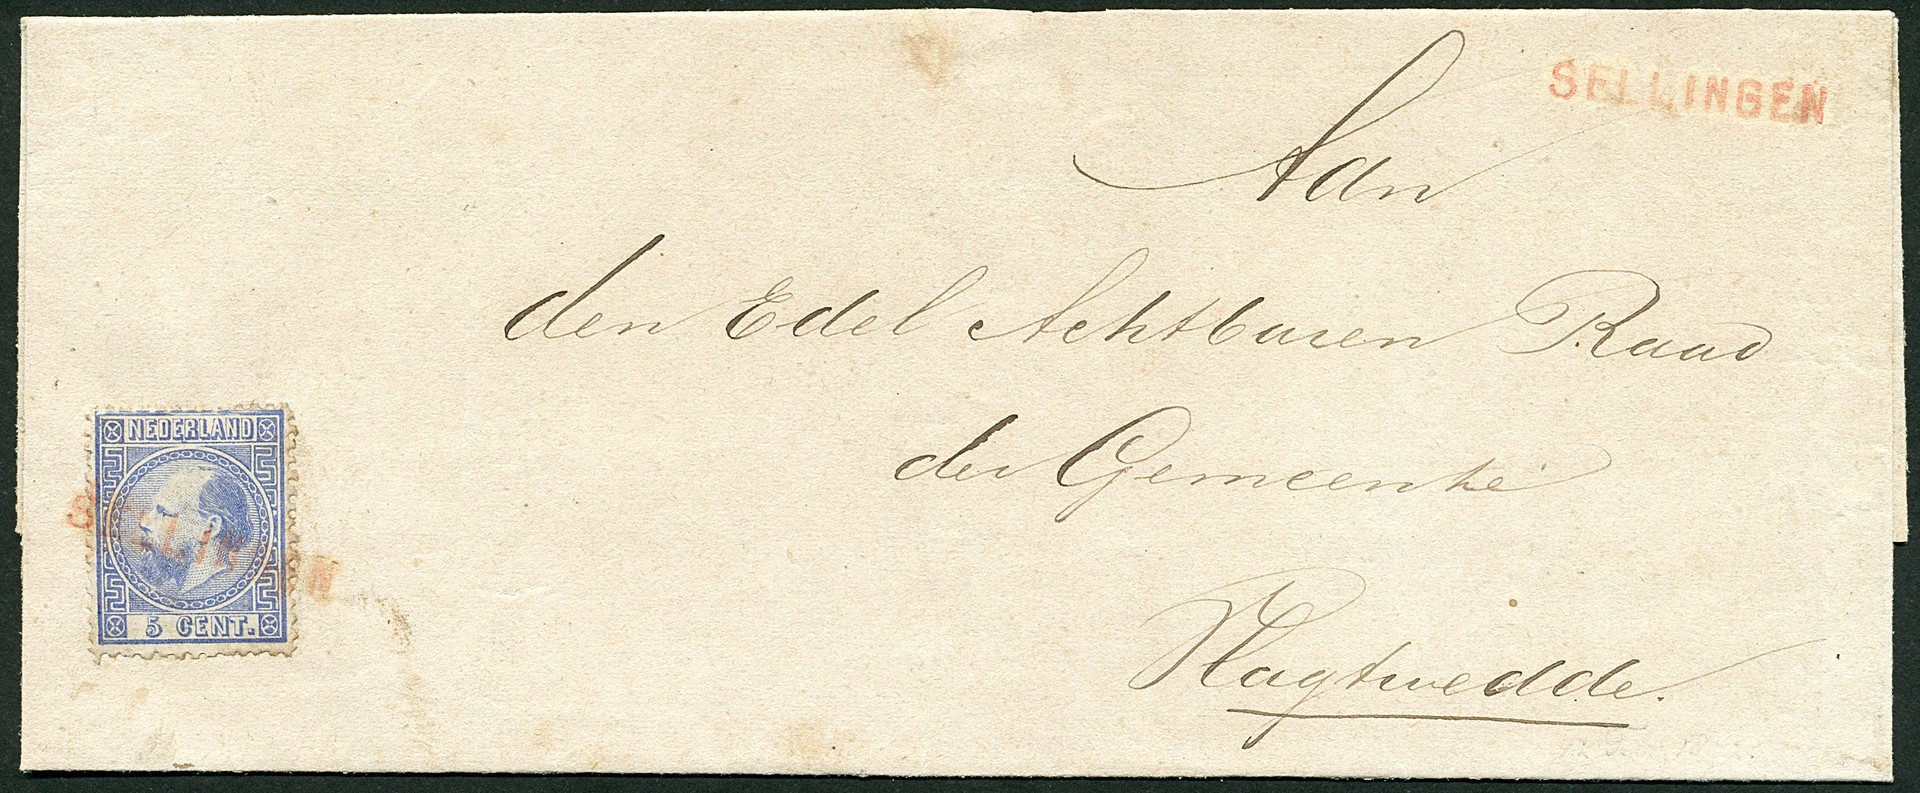 SELLINGEN
Aan
den Edel Achtbaren Raad
der Gemeente
Vlagtwedde.
NEDERLAND
SELLINGEN
5 CENT.